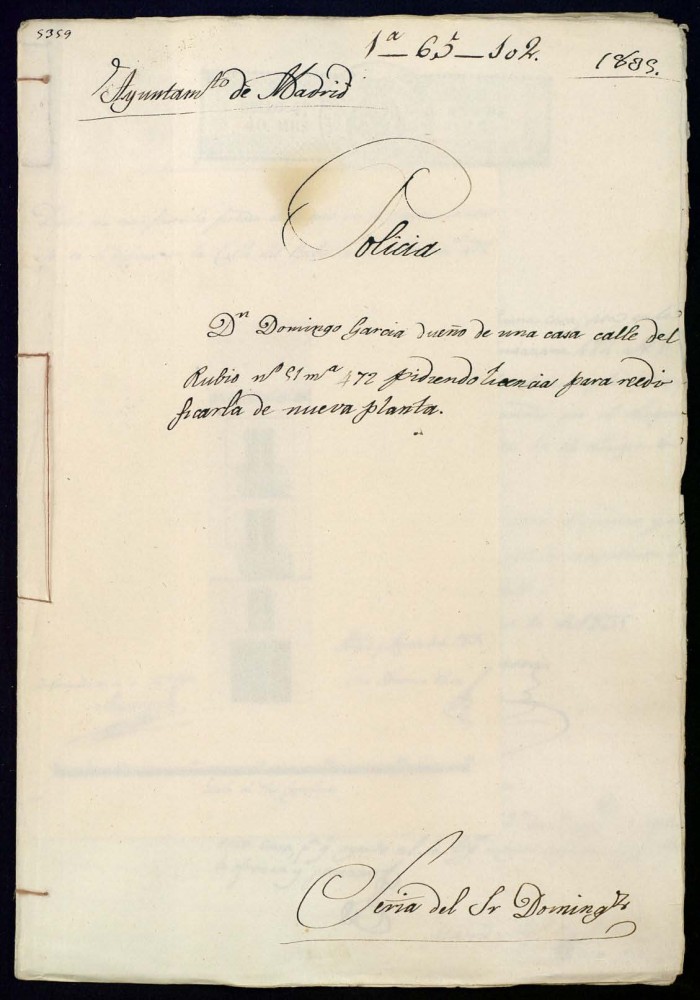 5359
1ª - 65 - 102.
1835.
Ayuntamto de Madrid
Policia
Dn Domingo Garcia dueño de una casa calle del
Rubio nº 51 mª 472 pidiendo licencia para reedi
ficarla de nueva planta.
Seria del Sr Domingz